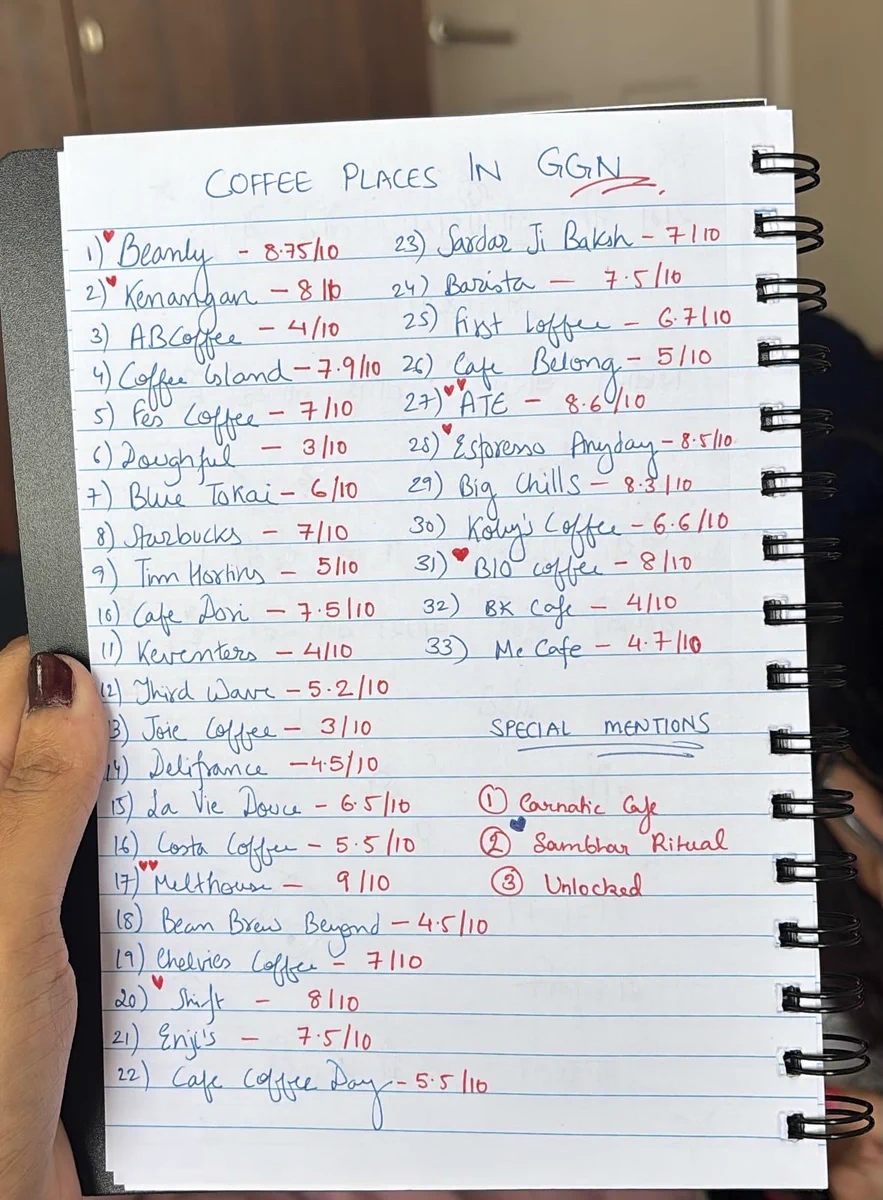 COFFEE PLACES IN GGN
1) Beanly - 8.75/10
2) Kenangan - 8/10
3) ABCoffee - 4/10
4) Coffee Island - 7.9/10
5) Fes Coffee - 7/10
6) Doughful - 3/10
7) Blue Tokai - 6/10
8) Starbucks - 7/10
9) Tim Hortins - 5/10
10) Cafe Dori - 7.5/10
11) Keventers - 4/10
12) Third Wave - 5.2/10
13) Joie Coffee - 3/10
14) Delifrance - 4.5/10
15) La Vie Douce - 6.5/10
16) Costa Coffee - 5.5/10
17) Melthouse - 9/10
18) Bean Brew Beyond - 4.5/10
19) Chelvies Coffee - 7/10
20) Shift - 8/10
21) Enji's - 7.5/10
22) Cafe Coffee Day - 5.5/10
23) Sardar Ji Baksh - 7/10
24) Barista - 7.5/10
25) First Coffee - 6.7/10
26) Cafe Belong - 5/10
27) ATE - 8.6/10
28) Espresso Anyday - 8.5/10
29) Big Chills - 8.3/10
30) Coffee - 6.6/10
31) BIO coffee - 8/10
32) BK Cafe - 4/10
33) Mc Cafe - 4.7/10
SPECIAL MENTIONS
1 Carnatic Cafe
2 Sambhar Ritual
3 Unlocked